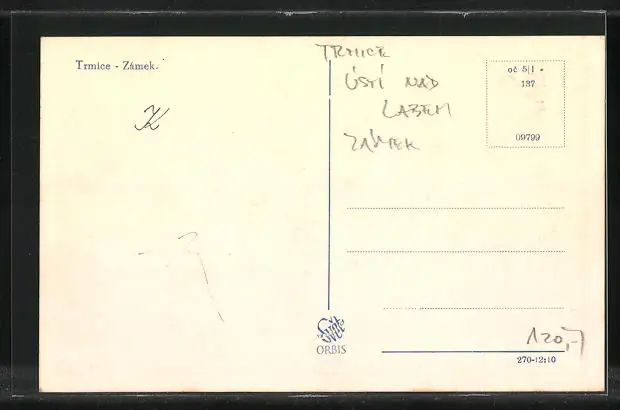 Trmice - Zámek.
K
TRMICE
ÚSTÍ NAD
LABEM
ZÁMEK
oč 5|1 -
137
09799
Svět
ORBIS
120,-
270-12:10